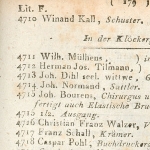 ( 179 )
Lit. F.
4710 Winand Kall, Schuster.
In der Klöcker
4711 Wilh. Mülhens,
4712 Herman Jos. Tilmann,
4713 Joh. Dihl seel. wittwe,
4714 Joh. Normand, Sattler.
4715 Joh. Bourens, Chirurgus u
fertigt auch Elastische Bruc
4715 1/2. Ausgang.
4716 Christian Franz Walzer,
4717 Franz Schall, Krämer.
4718 Caspar Pohl, Buchdrucker